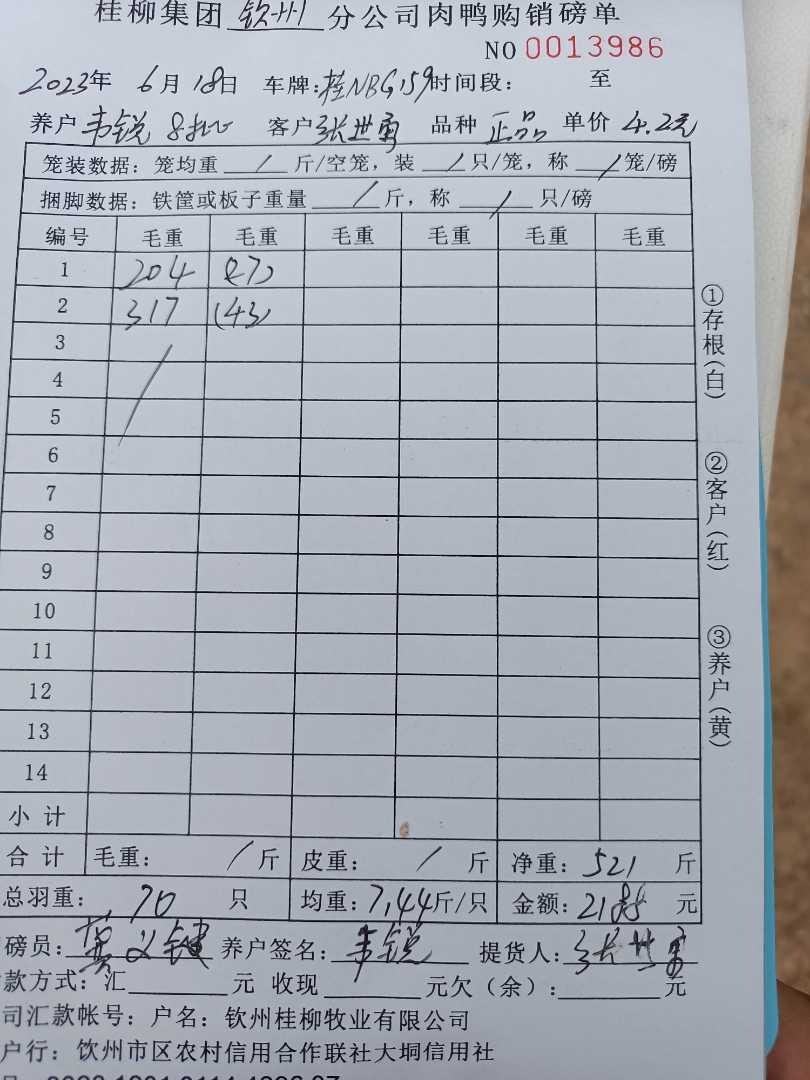 桂柳集团 钦州 分公司肉鸭购销磅单
NO 0013986
2023年 6月 18日 车牌:桂NBG159 时间段: 至
养户 韦锐 8批 客户 张世勇 品种 正品 单价 4.2元
笼装数据: 笼均重 / 斤/空笼, 装 / 只/笼, 称 / 笼/磅
捆脚数据: 铁筐或板子重量 / 斤, 称 / 只/磅
编号 毛重 毛重 毛重 毛重 毛重 毛重
1 204 (27)
2 317 (43)
3
4
5
6
7
8
9
10
11
12
13
14
小计
合计 毛重: / 斤 皮重: / 斤 净重: 521 斤
总羽重: 70 只 均重: 7.44斤/只 金额: 2188 元
磅员: 义键 养户签名: 韦锐 提货人: 张世勇
款方式: 汇 元 收现 元欠(余): 元
司汇款帐号: 户名: 钦州桂柳牧业有限公司
户行: 钦州市区农村信用合作联社大垌信用社
①存根(白)
②客户(红)
③养户(黄)